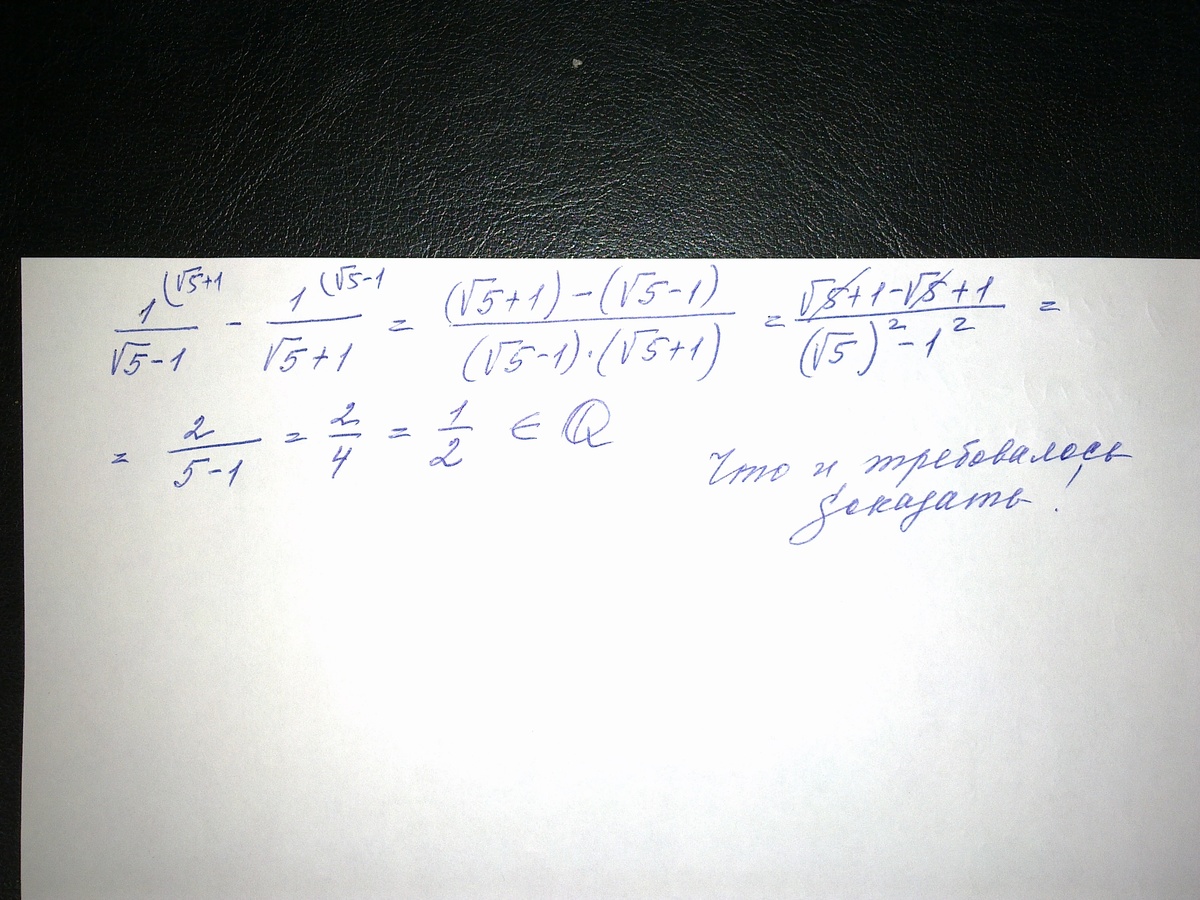 1^{(√5+1}/(√5-1) - 1^{(√5-1}/(√5+1) = ((√5+1)-(√5-1))/((√5-1)·(√5+1)) = (√5+1-√5+1)/((√5)²-1²) =
= 2/(5-1) = 2/4 = 1/2 ∈ ℚ
Что и требовалось
доказать!